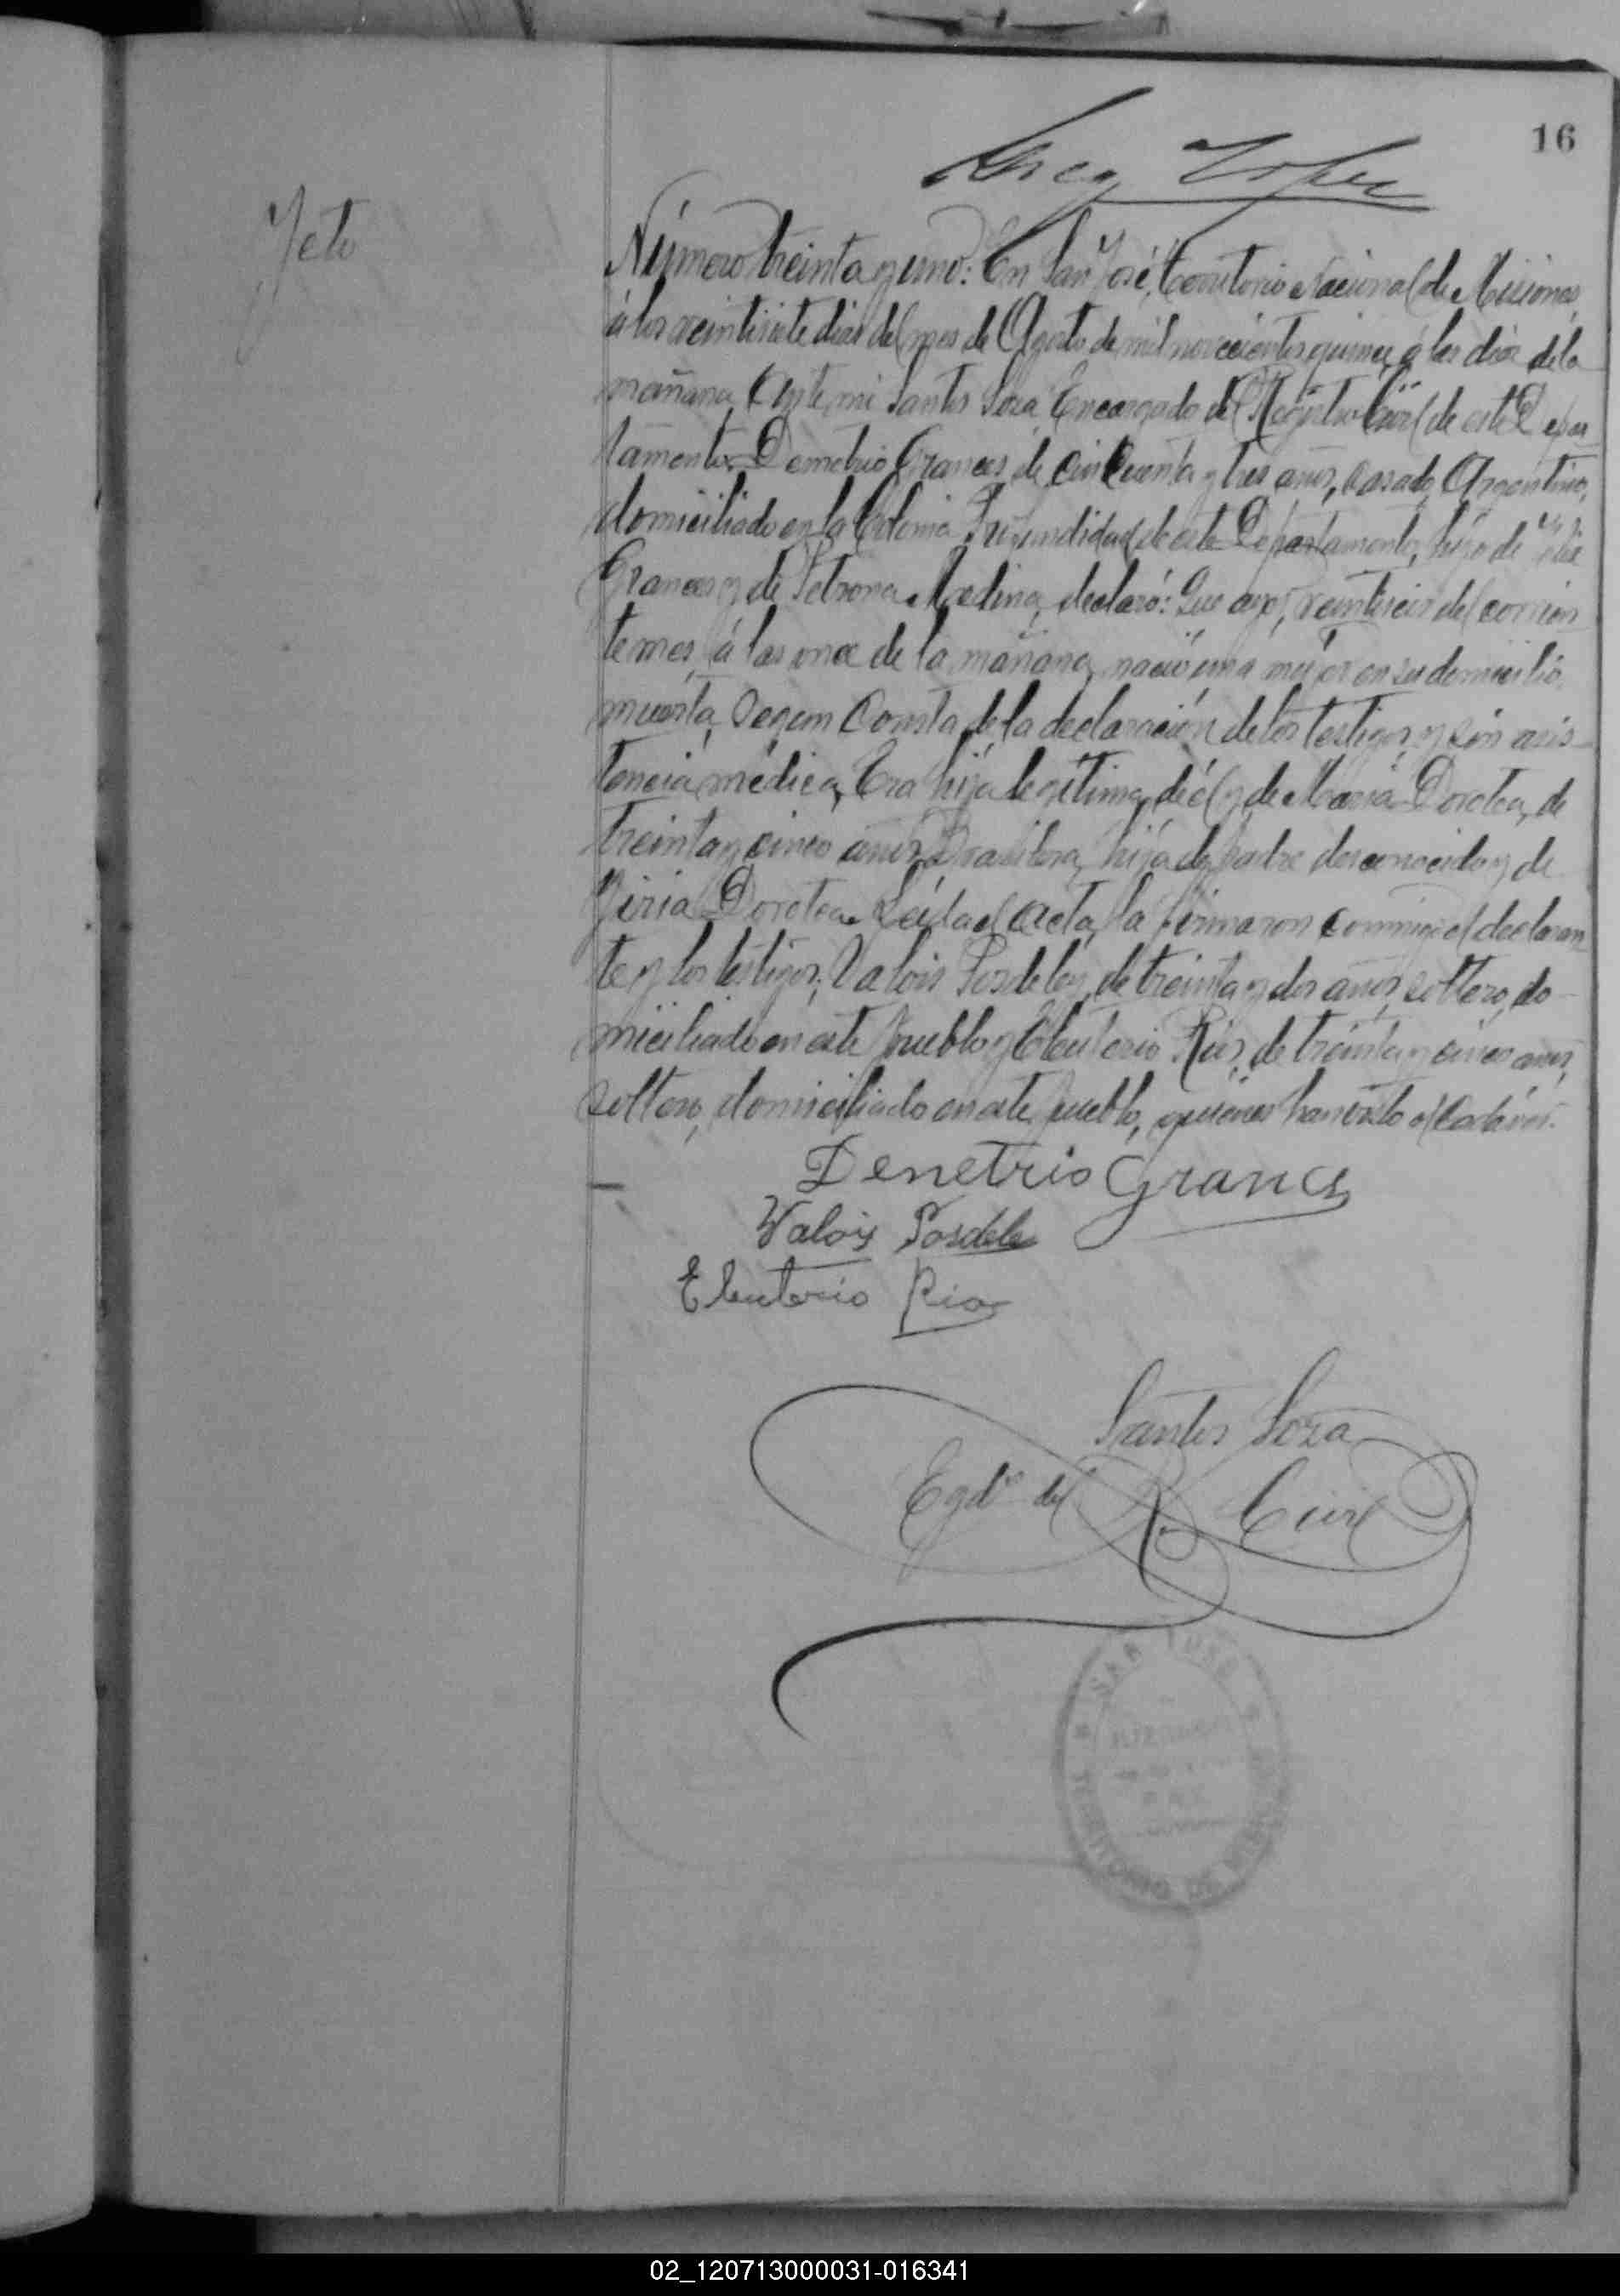 16
Feto
Número treinta y uno: En San José, Territorio Nacional de Misiones,
á los veintisiete dias del mes de Agosto de mil novecientos quince, á las diez de la
mañana, Ante mi Santos Soza, Encargado del Registro Civil de este Depar
tamento, Demetrio Frances, de cincuenta y tres años, casado, Argentino,
domiciliado en la Colonia Profundidad de este Departamento, hijo de
Frances y de Petrona Medina, declaró: Que ayer, veintiseis del corrien
te mes, á las once de la mañana, nació una mujer en su domicilio,
muerta, segun consta de la declaración de los testigos y sin asis
tencia médica, Era hija legítima, de él y de Maria Dorotea, de
treinta y cinco años, Brasilera, hija de padre desconocido y de
Dorotea. Leída el acta, la firmaron conmigo el declaran
te y los testigos, Valois Posdeley, de treinta y dos años, soltero, do
miciliado en este pueblo y Eleuterio Rios, de treinta y cinco años,
soltero, domiciliado en este pueblo, quienes han visto el cadáver.
Denetrio Grances
Valois Posdeley
Eleuterio Rios
Santos Soza
Egdo del R. Civil
SAN JOSE
TERRITORIO DE MISIONES
02_120713000031-016341